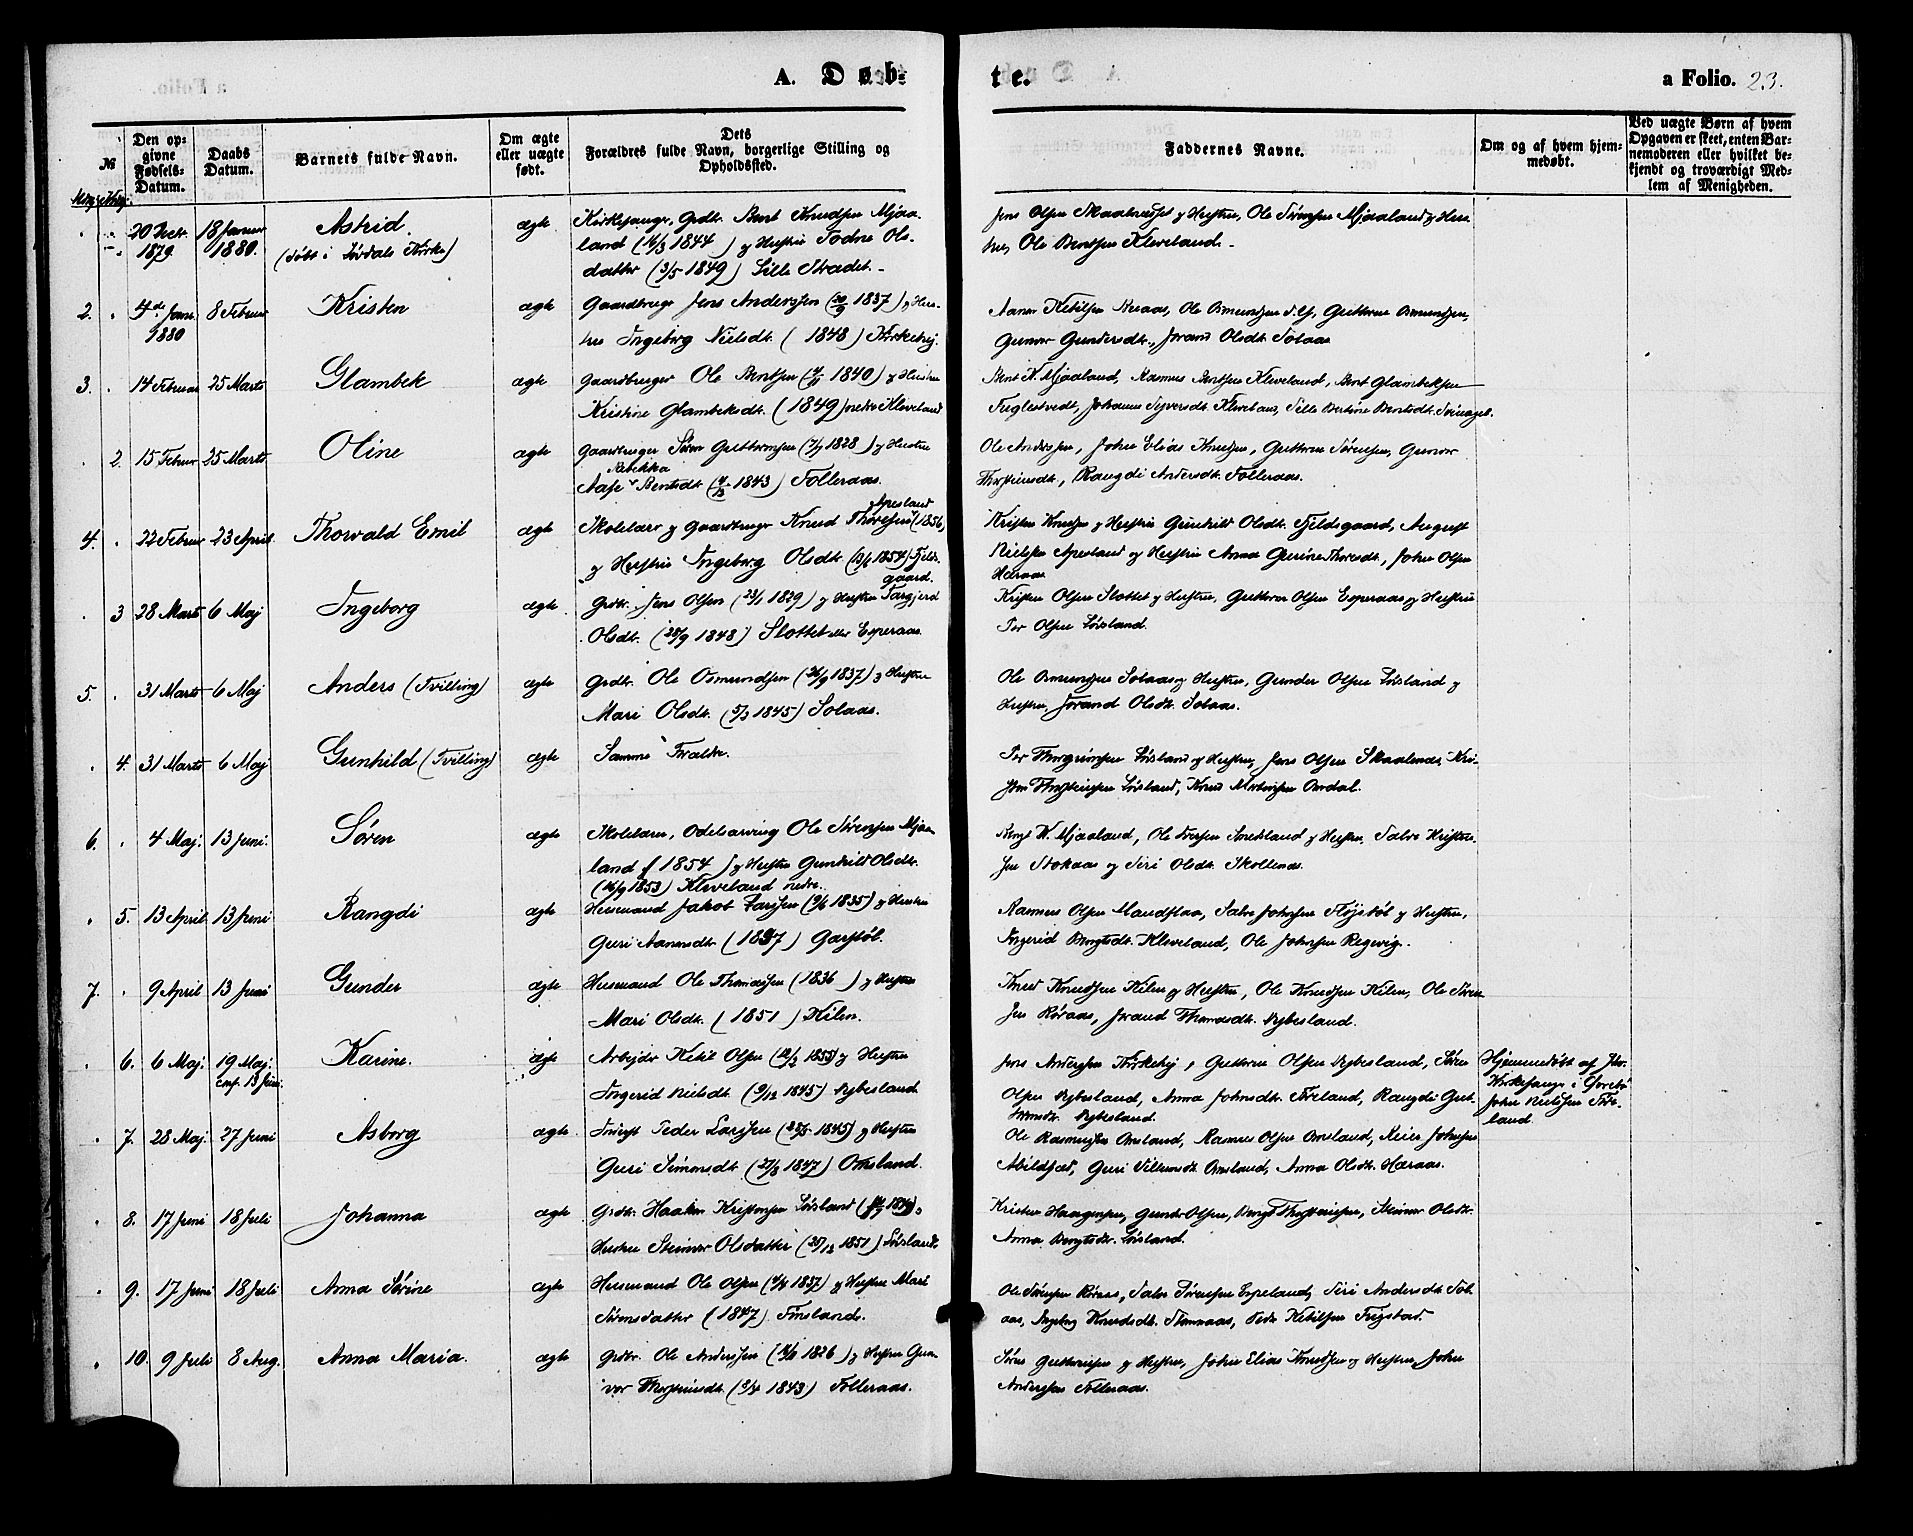 A. Døb-
te.
a Folio. 23.
№
Den op-
givne
Fødsels-
Datum.
Daabs
Datum.
Barnets fulde Navn.
Om ægte
eller uægte
født.
Dets
Forældres fulde Navn, borgerlige Stilling og
Opholdssted.
Faddernes Navne.
Om og af hvem hjem-
medøbt.
Ved uægte Børn af hvem
Opgaven er skeet, enten Bar-
nemoderen eller hvilket be-
kjendt og troværdigt Med-
lem af Menigheden.
20 Decbr. 1879. 18 Januar 1880. Astrid. (døbt i Hordals Kirke) ægte
Kirkesanger, Grdbr. Bent Knudsen Mjaa-
land (16/3 1844) og Hustru Todne Ols-
datter (3/5 1849) Lille Strædet.
Jens Olsen Skaalnæsset og Hustru, Ole Sørensen Mjaaland og Hus-
tru, Ole Bentsen Kleveland.
2. 4de Jan. 1880 8 Februar Kristen ægte
Gaardbruger Jens Anderssen (20/9 1837) og Hus-
tru Ingeborg Nielsdt. (1848) Kirkehej.
Aanen Ketilsen Aeraas, Ole Osmundsen Guttorm Osmundsen,
Gunvor Gundersdt., Jorand Olsdt. Solaas
3. 14 Februar 25 Marts Glambek ægte
Gaardbruger Ole Bentsen (4/11 1840) og Hustru
Kristine Glambeksdt. (1849) nedre Kleveland
Bent K. Mjaaland, Rasmus Bentsen Kleveland, Bent Glambeksen
Fuglestvedt, Johanne Syversdt. Kleveland, Sille Bertine Bentsdt.
2. 15 Februar 25 Marts Oline ægte
Gaardbruger Søren Guttormsen (7/7 1828) og Hustru
Rebekka
Aase Bentsdt. (4/12 1843) Tolleraas.
Ole Anderssen, John Elias Knudsen, Guttorm Sørensen, Gunvor
Thorsteinsdt., Rangdi Andersdt. Tolleraas.
4. 22 Februar 23 April. Thorvald Emil ægte
Apesland
Skolelærer og Gaardbruger Knud Thoresen (1856)
og Hustru Ingeborg Olsdt. (13/6 1854) Fjelds-
gaard.
Kristen Knudsen og Hustru Gunhild Olsdt. Fjeldsgaard, August
Nielsen Apesland og Hustru Anna Gurine Thoresdt., John Olsen
Hæraas
3 28 Marts 6 Maj Ingeborg ægte.
Grdbr. Jens Olsen (23/1 1829) og Hustru Targjerd
Olsdt. (28/9 1848) Slottet eller Esperaas.
Kristen Olsen Slottet og Hustru, Guttorm Olsen Esperaas og Hustru
Per Olsen Løisland.
5. 31 Marts 6 Maj Anders (Tvilling) ægte
Grdbr. Ole Osmundsen (24/9 1837) og Hustru
Mari Olsdt. (5/3 1845) Solaas.
Ole Osmundsen Solaas og Hustru, Gunder Olsen Løisland og
Hustru, Jorand Olsdt. Solaas.
4. 31 Marts 6 Maj Gunhild (Tvilling) ægte
Samme Forældre.
Per Thorgrimsen Løisland og Hustru, Jens Olsen Skaalnæs, Kri-
sten Thorsteinsen Løisland, Knud Mortensen Omdal.
6. 4 Maj. 13 Juni. Søren ægte
Skolelærer, Odelsarving Ole Sørensen Mjaa-
land (1854) og Hustru Gunhild Olsdt.
(16/9 1853) Kleveland nedre.
Bengt K. Mjaaland, Ole Smedsland og Hustru, Salve Kristen-
sen Stokaas og Siri Olsdt. Skollenæs.
5. 13 April 13 Juni Rangdi ægte
Husmand Jakob Larssen (9/6 1835) og Hustru
Guri Aanensdt (1837) Garstøl.
Rasmus Olsen Mandflaa, Salve Johnsen Fløjstøl og Hustru,
Ingerid Bengtsdt. Kleveland, Ole Johnsen Regevig.
7. 9 April 13 Juni Gunder ægte
Husmand Ole Thomassen (1836) og Hustru
Mari Olsdt. (1851) Kilen.
Knud Knudsen Kilen og Hustru, Ole Knudsen Kilen, Ole Søren-
sen Røraas, Jorand Thomasdt. Nybesland.
6. 6 Maj. 19 Maj. conf. 13 Juni. Karine. ægte
Arbejder Ketil Olsen (12/2 1855) og Hustru
Ingerid Nielsdt. (9/12 1845) Nybesland.
Jens Anderssen Kirkehej, Guttorm Olsen Nybesland, Søren
Olsen Nybesland, Anna Johnsdt. Føreland, Rangdi Gut-
tormsdt. Nybesland.
Hjemmedøbt af
Kirkesanger i
John Nielsen Føre-
land.
7. 28 Maj. 27 Juni Asborg ægte.
Inderst Peder Larssen (28/5 1845) og Hustru
Guri Simonsdt. (27/3 1847) Omsland.
Ole Rasmussen Omsland, Rasmus Olsen Omsland, Reier Johnsen
Abildsæt, Guri Villumsdt. Omsland, Anna Olsdt. Hæraas.
8. 17 Juni 18 Juli Johanna ægte
Grdbr. Haaken Kristensen Løisland (1849) og
Hustru Steinvor Olsdatter (25/12 1851) Løisland.
Kristen Haagensen, Gunder Olsen, Bengt Thorsteinsen, Steinvor Olsdt.
Anna Bengtsdt. Løisland.
9. 17 Juni 18 Juli Anna Sørine ægte
Husmand Ole Olsen (4/8 1857) og Hustru Mari
Sørensdatter (1847) Finsland.
Ole Sørensen Røraas, Salve Sørensen Espeland, Siri Andersdt. Sol-
aas, Ingeborg Knudsdt. Stennaas, Peder Ketilsen Frigstad.
10. 9 Juli 8 Aug. Anna Maria. ægte
Grdbr. Ole Anderssen (1826) og Hustru Gun-
vor Thorsteinsdt. (3/4 1843) Tolleraas.
Søren Guttormsen og Hustru, John Elias Knudsen og Hustru, John
Anderssen Tolleraas.